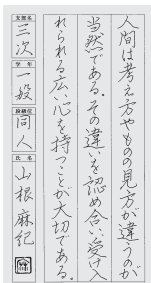 人間は考え方やものの見方が違うのが
当然である。その違いを認め合い、受け入
れられる広い心を持つことが大切である。
支部名 三次
学年 一般
段級位 同人
氏名 山根麻紀